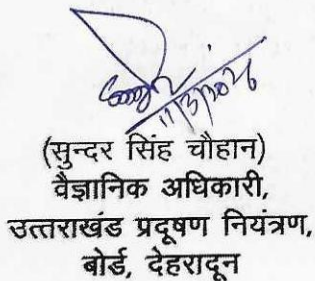 11/3/2026
(सुन्दर सिंह चौहान)
वैज्ञानिक अधिकारी,
उत्तराखंड प्रदूषण नियंत्रण,
बोर्ड, देहरादून